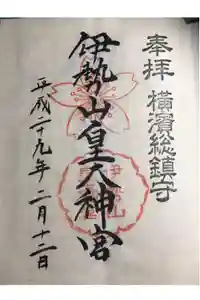 奉拝 横濱総鎮守
伊勢山皇大神宮
平成二十九年二月十二日